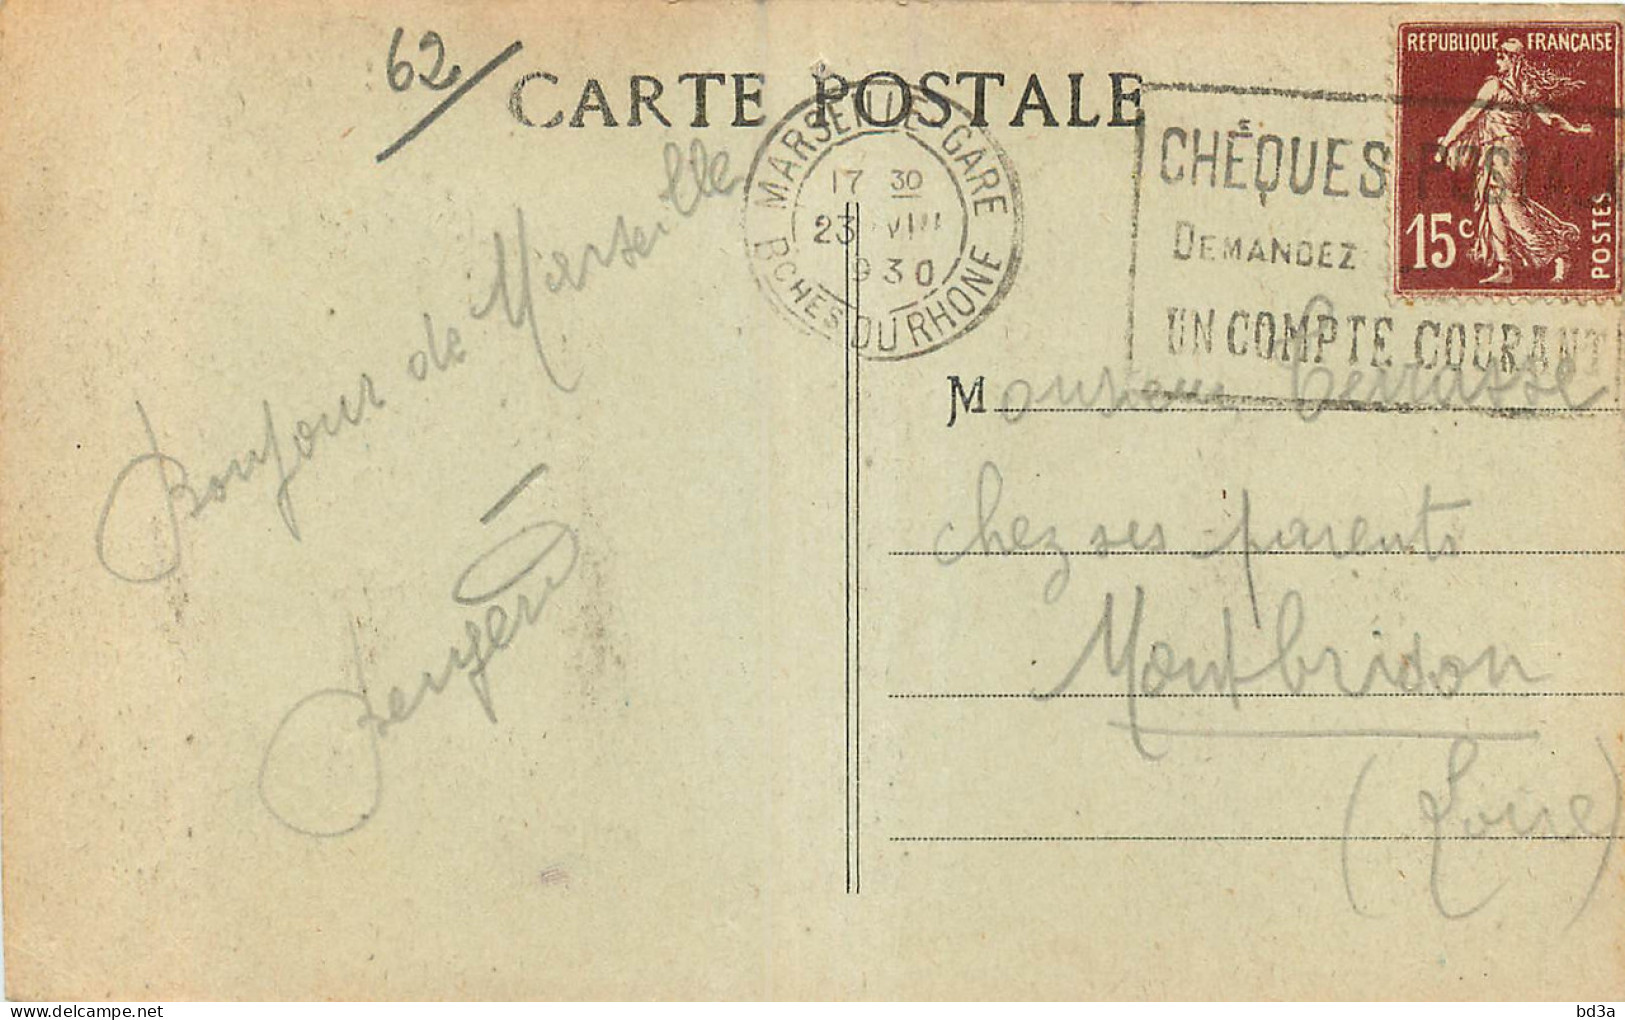 62
CARTE POSTALE
RÉPUBLIQUE FRANÇAISE
15c
POSTES
MARSEILLE-GARE
17 30
23 VIII
930
BCHES DU RHONE
CHÈQUES POSTAUX
DEMANDEZ
UN COMPTE COURANT
Bonjour de Marseille
Monsieur Terrasse
chez ses parents
Montbrison
(Loire)
bd3a